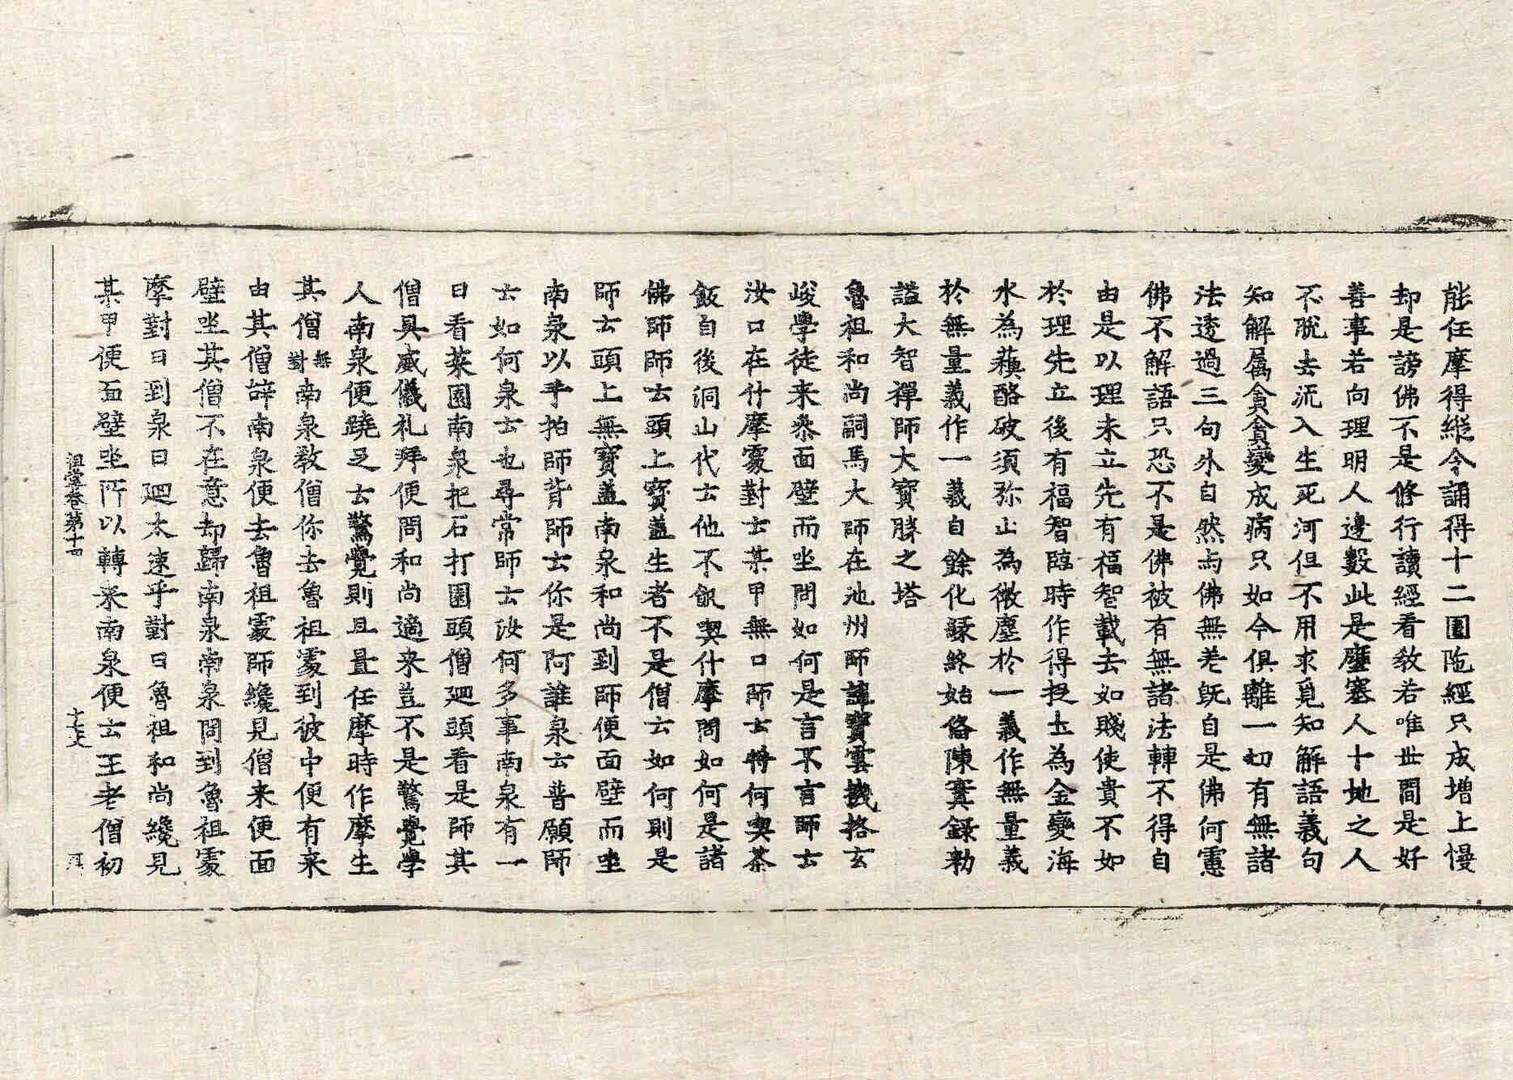 能任摩得縱令誦得十二圍陁經只成增上慢
却是謗佛不是修行讀經看教若唯世間是好
善事若向理明人邊數此是壅塞人十地之人
不脫去流入生死河但不用求覓知解語義句
知解属貪貪變成病只如今俱離一切有無諸
法透過三句外自然与佛無差既自是佛何慮
佛不解語只恐不是佛被有無諸法轉不得自
由是以理未立先有福智載去如賤使貴不如
於理先立後有福智臨時作得捉土為金變海
水為蘓酪破須弥山為微塵於一義作無量義
於無量義作一義自餘化緣終始俻陳實録勑
謚大智禪師大寶勝之塔
魯祖和尚嗣馬大師在池州師諱寶雲機格玄
峻學徒来叅面壁而坐問如何是言不言師云
汝口在什摩䖏對云某甲無口師云將何喫茶
飯自後洞山代云他不飢喫什摩問如何是諸
佛師師云頭上寶蓋生者不是僧云如何則是
師云頭上無寶蓋南泉和尚到師便面壁而坐
南泉以手拍師背師云你是阿誰泉云普願師
云如何泉云也尋常師云汝何多事南泉有一
日看菜園南泉把石打園頭僧迴頭看是師其
僧具威儀礼拜便問和尚適来豈不是驚覺學
人南泉便蹺足云驚覺則且置任摩時作摩生
其僧無對南泉教僧你去魯祖䖏到彼中便有来
由其僧辝南泉便去魯祖䖏師纔見僧来便面
壁坐其僧不在意却歸南泉南泉問到魯祖䖏
摩對曰到泉曰迴太速乎對曰魯祖和尚纔見
某甲便面壁坐所以轉来南泉便云王老僧初
祖堂卷第十四